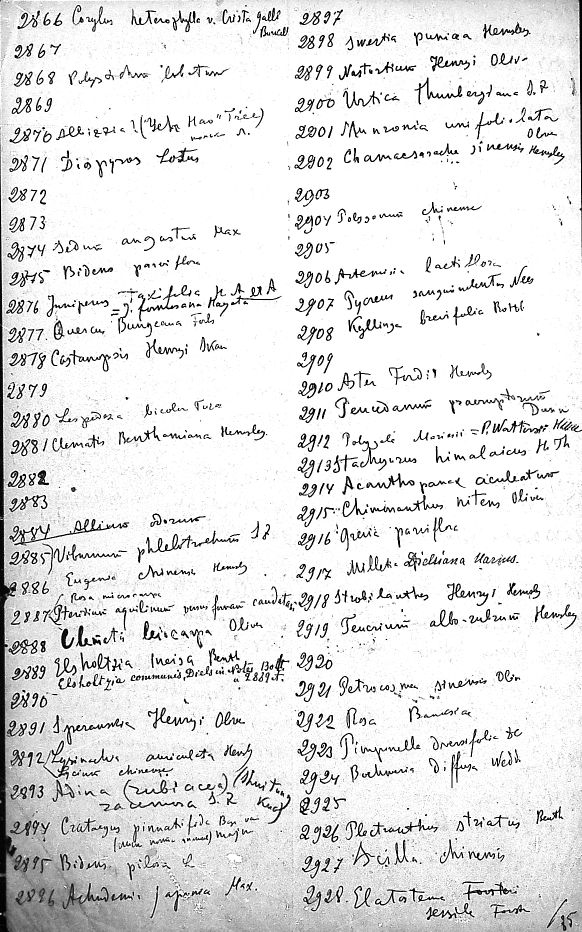 2866 Corylus heterophylla v. Crista galli
Burvill
2867
2868 Polystichum lobatum
2869
2870 Albizzia? ("Yehe Hao" Tree)
2871 Diospyros Lotus
2872
2873
2874 Sedum angustum Max
2875 Bidens parviflora
2876 Juniperus taxifolia H. A et A
= J. formosana Hayata
2877. Quercus Bungeana Forb
2878 Castanopsis Henryi Skan
2879
2880 Lespedeza bicolor Turz
2881 Clematis Benthamiana Hemsley.
2882
2883
2884 Allium odorum
2885 Viburnum phlebotrichum S Z
2886 Eugenia chinensis Hemsl
Rosa microcarpa
2887 Pteridium aquilinum caudatum
2888 Clematis leiocarpa Oliver
2889 Elsholtzia incisa Benth
Elsholtzia communis, Diels
a 2889 et.
2890
2891 Speranskia Henryi Oliv
2892 Lysimachia auriculata Hemsl
Lycium chinense
2893 Adina (rubiacea)
racemosa S. Z
2894 Crataegus pinnatifida Bge va
major
2895 Bidens pilosa L
2896 japonica Max.
2897
2898 Swertia punicea Hemsley
2899 Nasturtium Henryi Oliv.
2900 Urtica Thunbergiana S. Z
2901 Munronia unifoliolata
Oliv
2902 Chamaesarache sinensis Hemsley
2903
2904 Polygonum chinense
2905
2906 Artemisia lactiflora
2907 Pycreus sanguinolentus Nees
2908 Kyllinga brevifolia Rottb
2909
2910 Aster Fordii Hemsley
2911 Peucedanum praeruptorum
Dunn
2912 Polygala Mariesii = P. Wattersii Hance
2913 Stachyurus himalaicus H Th
2914 Acanthopanax aculeatum
2915 Chimonanthus nitens Oliver
2916 Grewia parviflora
2917 Milletia Dielsiana Harms.
2918 Strobilanthus Henryi Hemsl
2919 Teucrium albo-rubrum Hemsley
2920
2921 Petrocosmea sinensis Oliv
2922 Rosa Banksiae
2923 Pimpinella diversifolia DC
2924 Boehmeria diffusa Wedd.
2925
2926 Plectranthus striatus Benth
2927 Scilla chinensis
2928. Elatostema Forsteri
sessile Forst
/35.